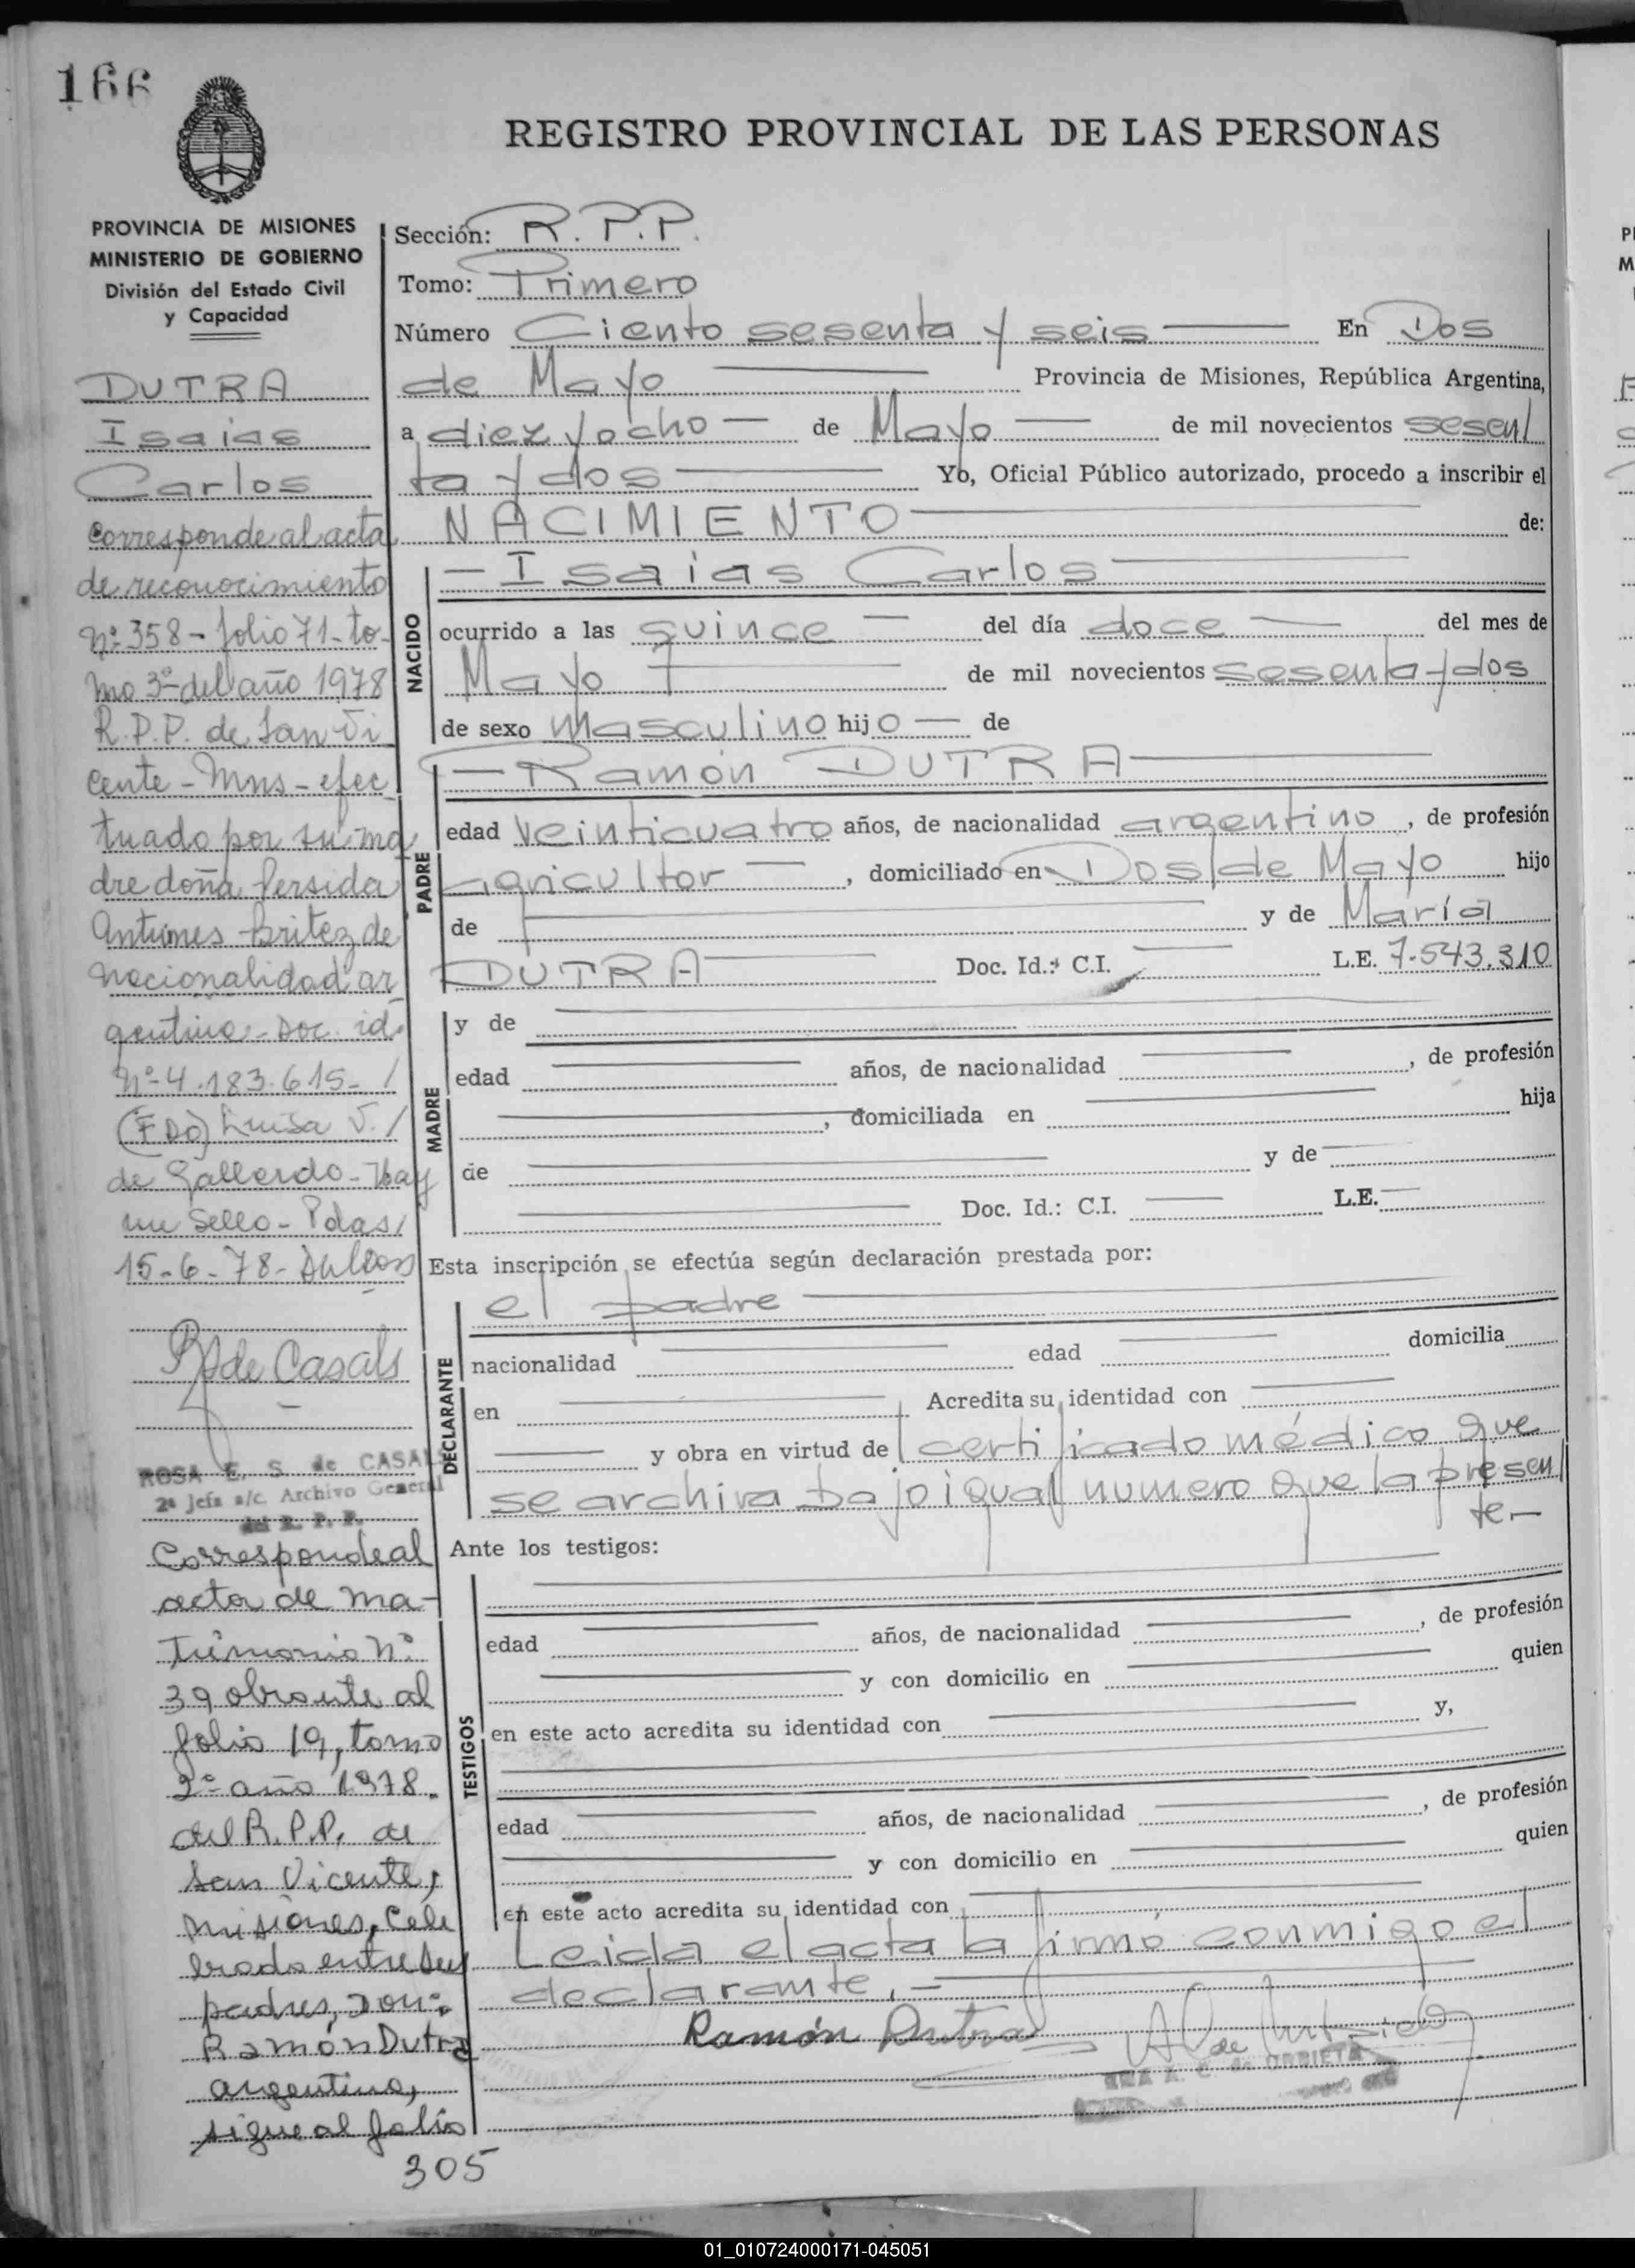 166
REGISTRO PROVINCIAL DE LAS PERSONAS
PROVINCIA DE MISIONES
MINISTERIO DE GOBIERNO
División del Estado Civil
y Capacidad
DUTRA
Isaias
Carlos
Corresponde al acta
de reconocimiento
Nº 358 - folio 71 - to-
mo 3º del año 1978
R.P.P. de San Vi
cente - Mns - efec
tuado por su ma
dre doña Persida
Antunes Britez de
nacionalidad ar
gentina - Doc. id.
Nº 4.183.615 - /
(FDO) Luisa V. /
de Gallardo - Hay
un sello - Pdas/
15-6-78-
R de Casals
ROSA E. S. de CASALS
2ª Jefa a/c. Archivo General
del R. P. P.
Corresponde al
acta de ma-
trimonio Nº
39 obrante al
folio 19, tomo
2º año 1978.
del R.P.P. de
San Vicente,
Misiones, Cele
brado entre sus
padres, Don:
Ramón Dutra
argentino,
sigue al folio
305
Sección: R.P.P.
Tomo: Primero
Número Ciento sesenta y seis En Dos
de Mayo Provincia de Misiones, República Argentina,
a diez y ocho de Mayo de mil novecientos sesen/
ta y dos Yo, Oficial Público autorizado, procedo a inscribir el
NACIMIENTO de:
NACIDO
Isaias Carlos
ocurrido a las quince del día doce del mes de
Mayo de mil novecientos sesenta y dos
de sexo masculino hijo de
PADRE
Ramón DUTRA
edad veinticuatro años, de nacionalidad argentino, de profesión
agricultor, domiciliado en Dos de Mayo hijo
de y de María
DUTRA Doc. Id.: C.I. L.E. 7.543.310
MADRE
y de
edad años, de nacionalidad , de profesión
, domiciliada en hija
de y de
Doc. Id.: C.I. L.E.
Esta inscripción se efectúa según declaración prestada por:
DECLARANTE
el padre
nacionalidad edad domicilia
en Acredita su identidad con
y obra en virtud de certificado médico que
se archiva bajo igual numero que la presen/
te.-
Ante los testigos:
TESTIGOS
edad años, de nacionalidad , de profesión
y con domicilio en quien
en este acto acredita su identidad con y,
edad años, de nacionalidad , de profesión
y con domicilio en quien
en este acto acredita su identidad con
Leida el acta la firmó conmigo el
declarante.-
Ramón Dutra
01_010724000171-045051